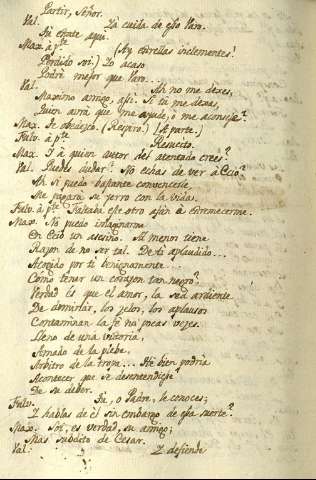 Partir, Señor.
Val. La cuida de eso Varo.
Tú estate aqui.
Max. à pte (Ay estrellas inclementes!
Perdido soi.) Lo acaso
Podrá mejor que Varo.
Val. Ah no me dexes,
Maximo amigo, asi. Si tu me dexas,
Quien avrá que me ayude, ô me aconseje?
Max. Te obedesco. (Respiro.) (A parte.)
Fulv. à pte Resucito.
Max. I à quien autor del atentado crees?
Val. Puedes dudar? No echas de ver à Ecio?
Ah si puedo bastante convencerle,
Me pagará su yerro con la vida.
Fulv. à pte Faltaba este otro afán à estremecerme.
Max. No puedo imaginarme
En Ecio un asesino. Al menor tiene
Razon de no ser tal. De ti aplaudido...
Acogido por ti benignamente...
Como tener un corazon tan negro?
Verdad es que el amor, la sed ardiente
De dominar, los zelos, los aplausos
Contaminan la fe no pocas vezes.
Lleno de una victoria,
Amado de la plebe,
Arbitro de la tropa... He bien podria
Acontecer que se desentendiese
De su deber.
Fulv. Tú, o Padre, le conoces;
I hablas de èl sin embargo de esa suerte?
Max. Soi, es verdad, su amigo;
Mas subdito de Cesar.
Val: I defiende